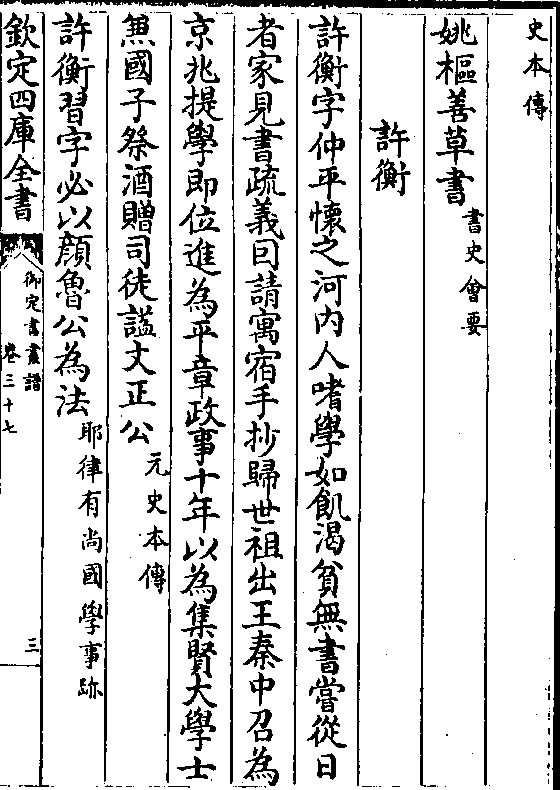 史本傳
姚樞善草書書史會要
許衡
許衡字仲平懷之河内人嗜學如飢渴貧無書嘗從日
者家見書疏義因請寓宿手抄歸世祖出王秦中召為
京兆提學即位進為平章政事十年以為集賢大學士
兼國子祭酒贈司徒諡文正公元史本傳
許衡習字必以顔魯公為法耶律有尚國學事跡
欽定四庫全書
御定書畫譜
卷三十七
三